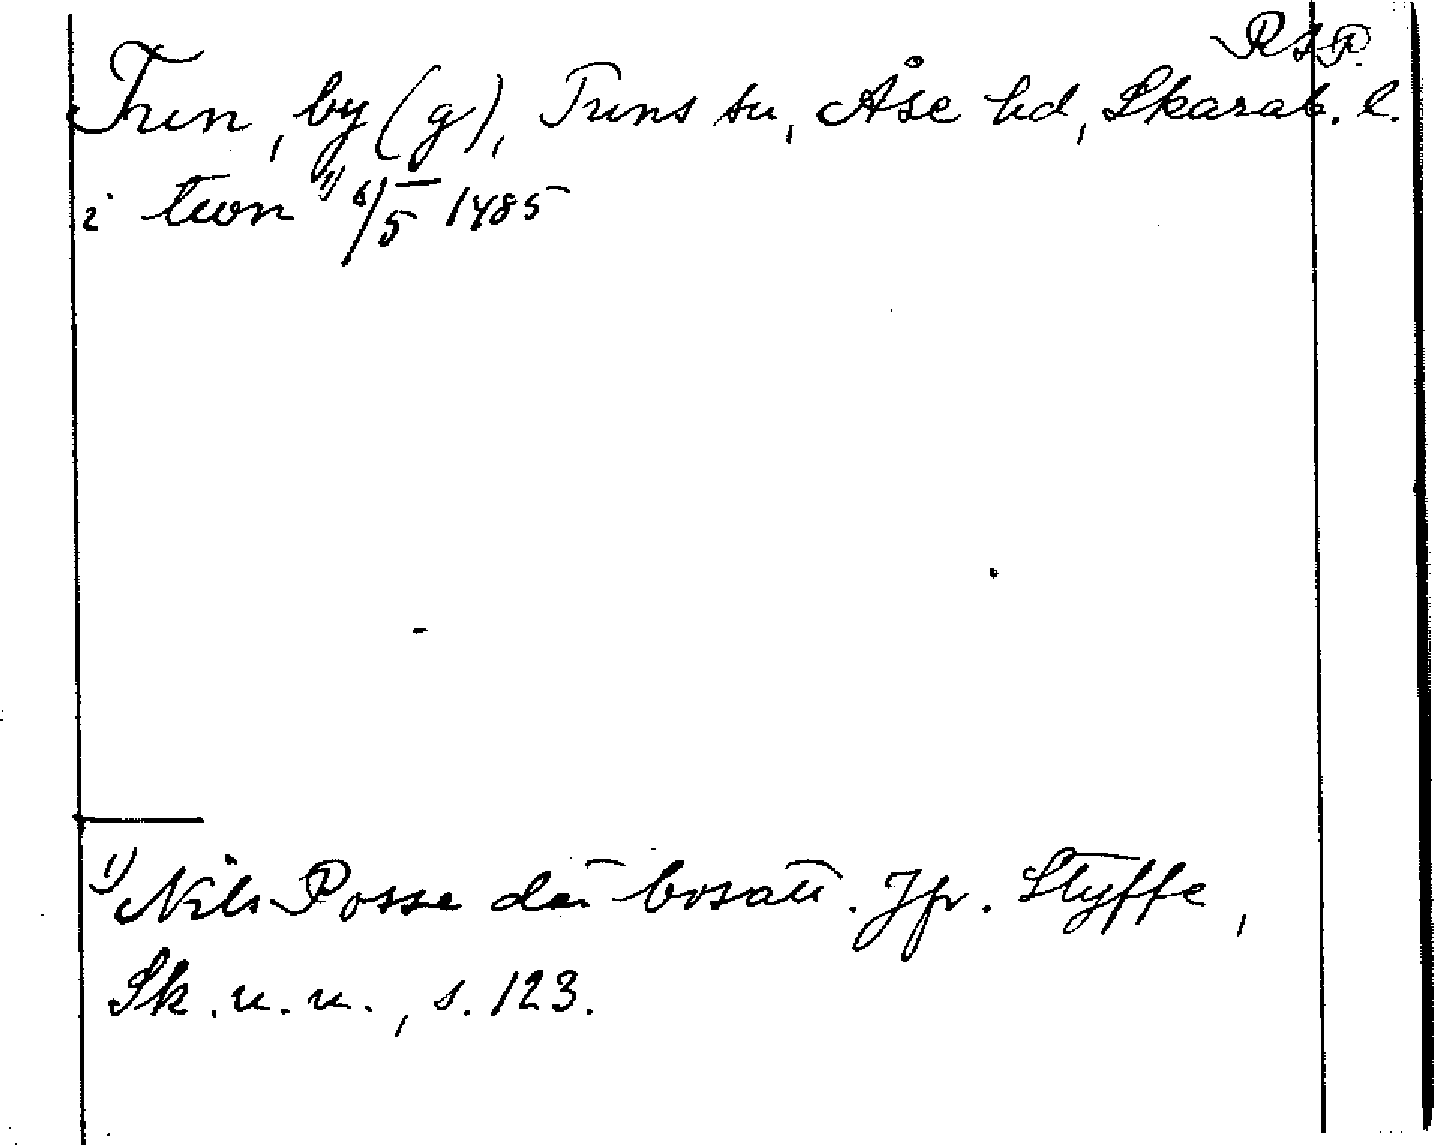 RAP.
Trun, by (g), Truns sn, Åse hd, Skarab. l.
i twn 1) 6/5 1485
1) Nils Posse där bosatt. Jfr. Styffe,
Sk. u. u., s. 123.